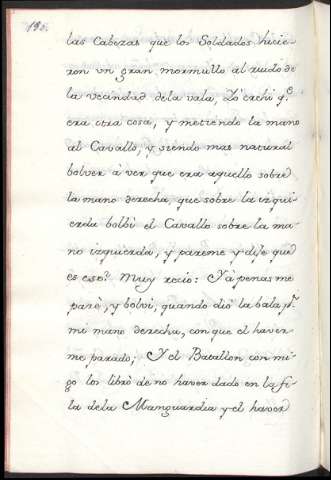 195.
las Cabezas que los Soldados hicie-
ron un gran mormullo al ruido de
la vecindad dela vala, Yo crehi q.e
era otra cosa, y metiendo la mano
al Cavallo, y siendo mas natural
bolver à ver que era aquello sobre
la mano derecha, que sobre la izqui-
erda bolbì el Cavallo sobre la ma-
no izquierda, y pareme y dije que
es eso? Muy recio: Yà penas me
parè, y bolvi, quando diò la bala p.r
mi mano derecha, con que el haver
me parado; Y el Batallon con mi-
go los librò de no haver dado en la fi-
la dela Manguardia y el haver